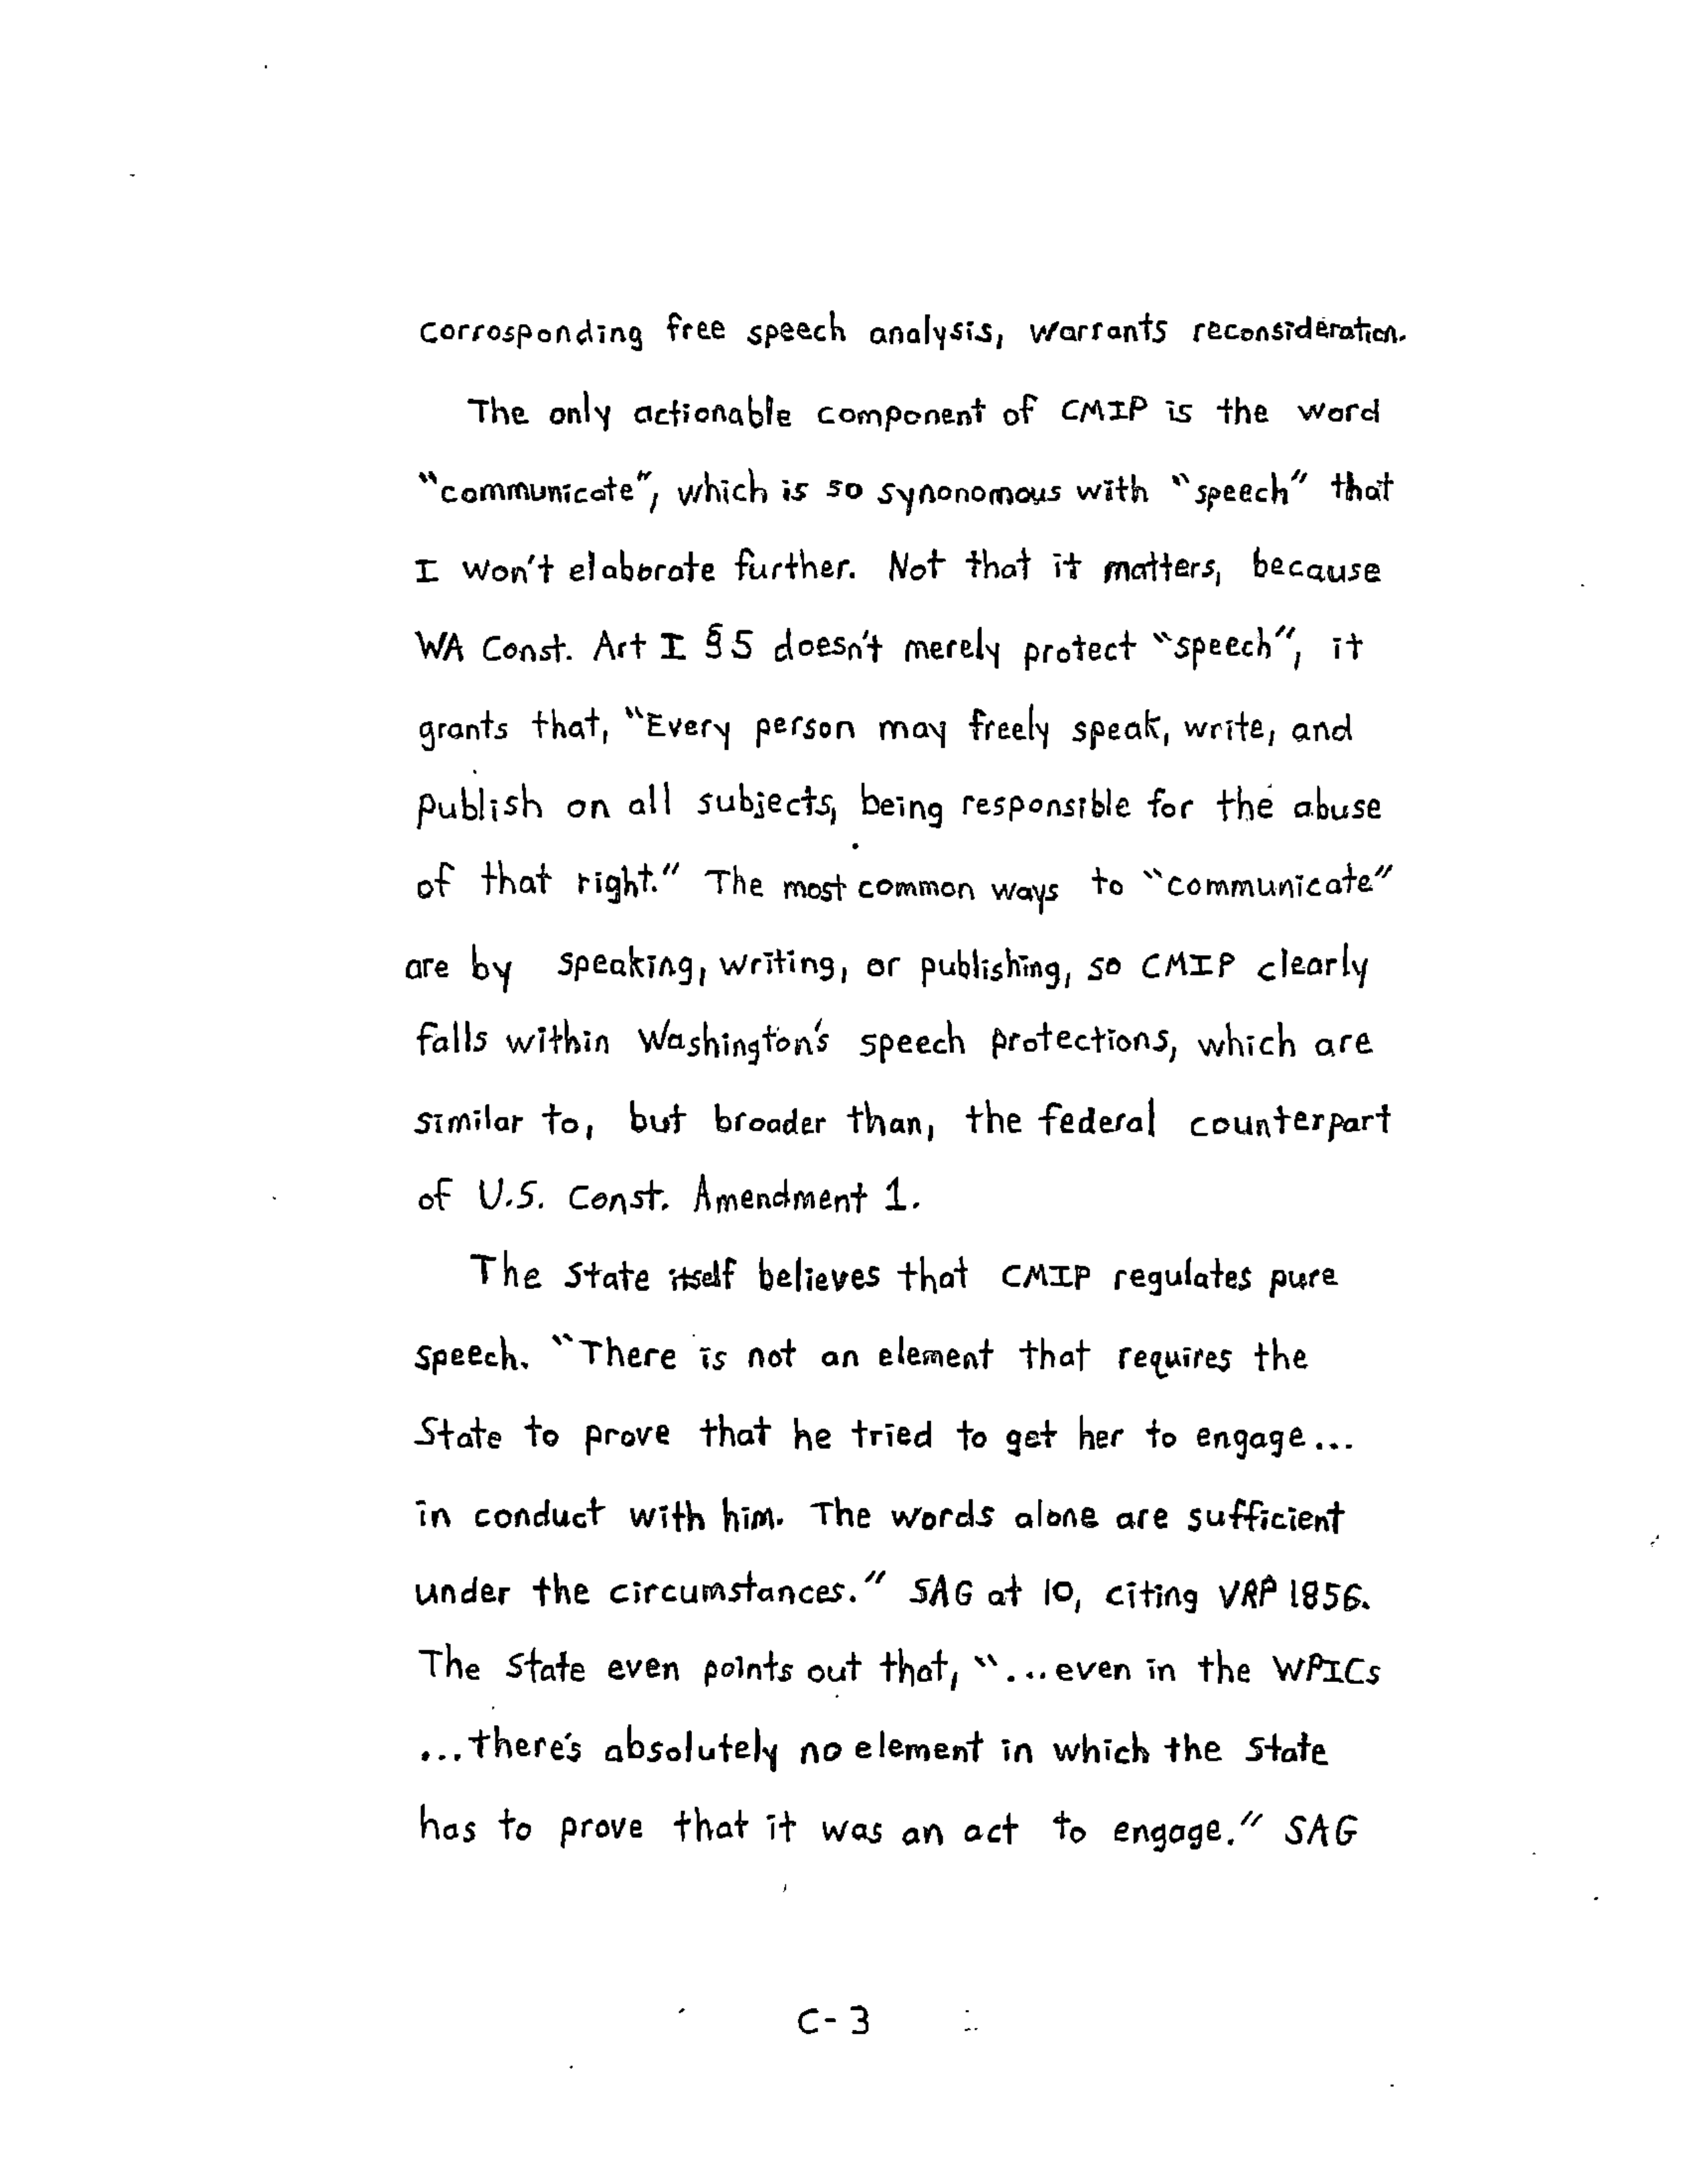 corrosponding free speech analysis, warrants reconsideration.
The only actionable component of CMIP is the word
"communicate", which is so synonomous with "speech" that
I won't elaborate further. Not that it matters, because
WA Const. Art I § 5 doesn't merely protect "speech", it
grants that, "Every person may freely speak, write, and
publish on all subjects, being responsible for the abuse
of that right." The most common ways to "communicate"
are by speaking, writing, or publishing, so CMIP clearly
falls within Washington's speech protections, which are
similar to, but broader than, the federal counterpart
of U.S. Const. Amendment 1.
The State itself believes that CMIP regulates pure
speech. "There is not an element that requires the
State to prove that he tried to get her to engage...
in conduct with him. The words alone are sufficient
under the circumstances." SAG at 10, citing VRP 1856.
The State even points out that, "...even in the WPICs
...there's absolutely no element in which the State
has to prove that it was an act to engage." SAG
C-3